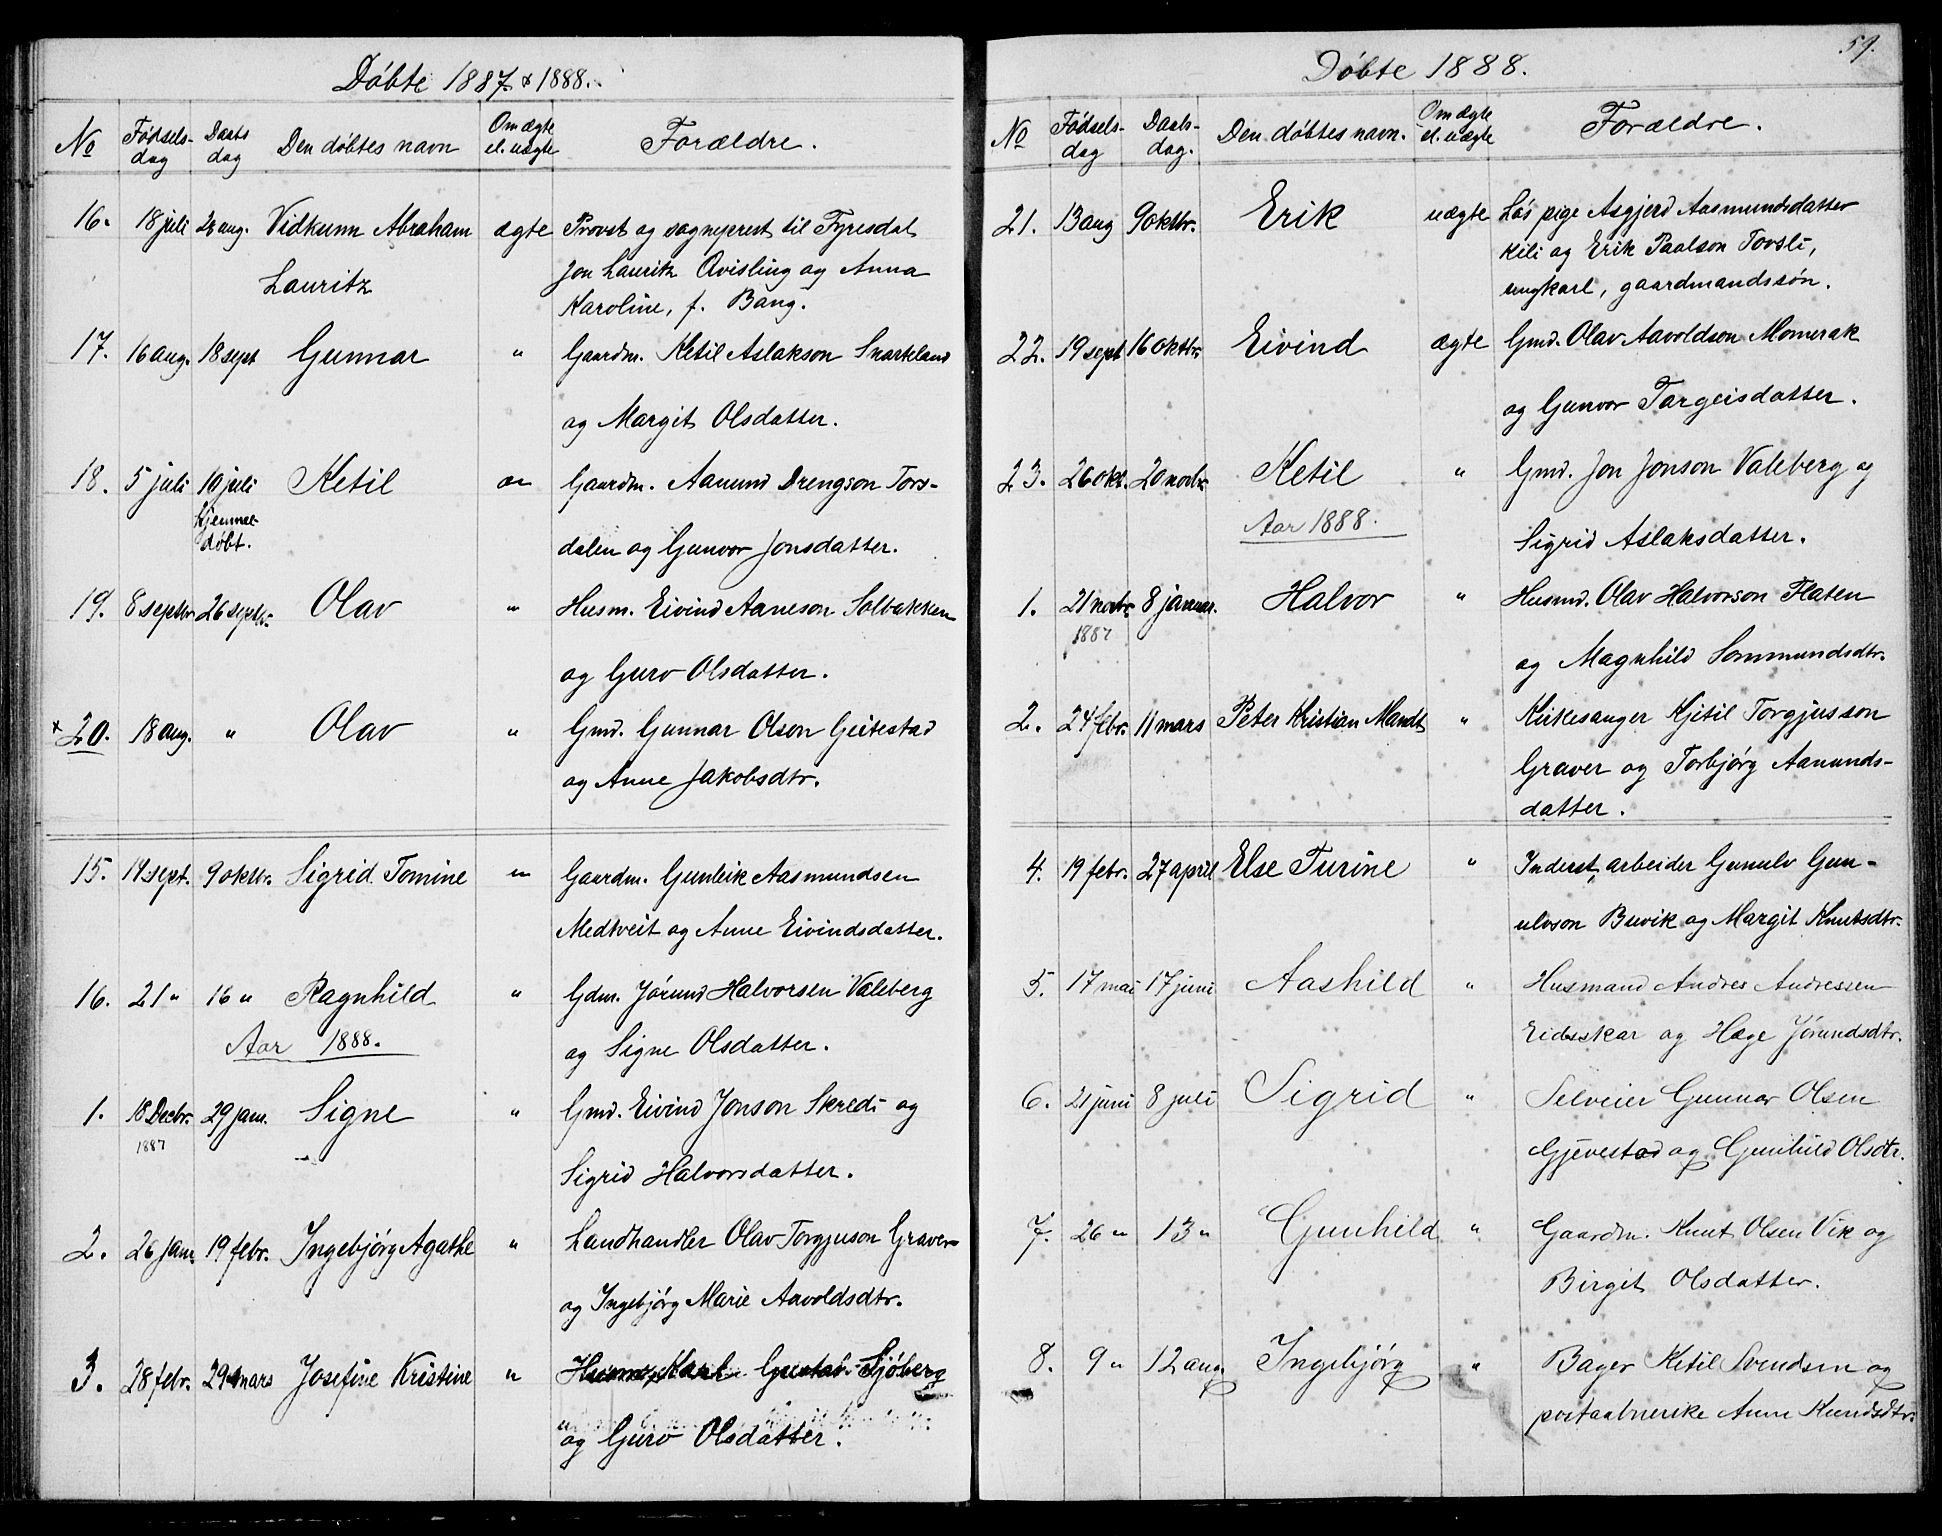 Døbte 1887 & 1888.
No Fødsels-dag Daabs dag Den døbtes navn Om ægte el. uægte Forældre.
16. 18 juli 20 aug. Vidkunn Abraham ægte Provst og sogneprest til Fyresdal
Lauritz Jon Lauritz Qvisling og Anna
Karoline, f. Bang.
17. 16 aug. 18 sept Gunnar " Gaardm. Ketil Aslakson Snarteland
og Margit Olsdatter.
18. 5 juli 10 juli Ketil " Gaardm. Aanund Drengson Tors-
hjemme-
døbt. dalen og Gunvor Jonsdatter.
19. 8 septbr. 26 septbr. Olav " Husm. Eivind Aaneson Solbakken
og Guro Olsdatter.
x 20. 18 aug. " Olav " Gmd. Gunnar Olson Geitestad
og Anne Jakobsdtr.
15. 14 sept. 9 oktbr. Sigrid Tomine " Gaardm. Gunleik Aasmundsen
Medtveit og Anne Eivindsdatter.
16. 21 " 16 " Ragnhild " Gdm. Jørund Halvorsen Valeberg
Aar 1888. og Signe Olsdatter.
1. 18 Decbr. 29 jan. Signe " Gmd. Eivind Jonson Skredi og
1887
Sigrid Halvorsdatter.
2. 26 jan. 19 febr. Ingebjørg Agathe " Landhandler Olav Torgjuson Graver
og Ingebjørg Marie Aavoldsdtr.
3. 28 febr. 29 mars Josefine Kristine " Husm. Karl Gustav Sjöberg
og Guro Olsdatter.
59.
Døbte 1888.
No Fødsels-dag Daabs-dag. Den døbtes navn. Om ægte el. uægte Forældre.
21. 13 aug 9 oktbr. Erik uægte Løs pige Asgjerd Aasmundsdatter
Kili og Erik Paalson Tovsli,
ungkarl, gaardmandssøn.
22. 19 sept 16 oktbr. Eivind ægte Gmd. Olav Aavoldson Momrak
og Gunvor Targeisdatter.
23. 26 okt. 20 novbr. Ketil " Gmd. Jon Jonson Valeberg og
Aar 1888. Sigrid Aslaksdatter.
1. 21 novbr. 8 januar. Halvor " Husmd. Olav Halvorson Flaten
1887
og Magnhild Sommundsdtr.
2. 24 febr. 11 mars Peter Kristian Mandt " Kirkesanger Kjetil Torgjusson
Graver og Torbjørg Aanunds-
datter.
4. 19 febr. 27 april Else Turine " Inderst, arbeider Gunulv Gun-
ulvson Buvik og Margit Knutsdtr.
5. 17 mai 17 juni Aashild " Husmand Andres Andressen
Eidsskar og Hæge Jørundsdtr.
6. 21 juni 8 juli Sigrid " Selveier Gunnar Olsen
Gjevestad og Gunhild Olsdtr.
7. 26 " 13 " Gunhild " Gaardm. Knut Olsen Vik og
Birgit Olsdatter.
8. 9 " 12 aug. Ingebjørg " Bager Ketil Svendsen og
postaabnerske Anne Knudsdtr.